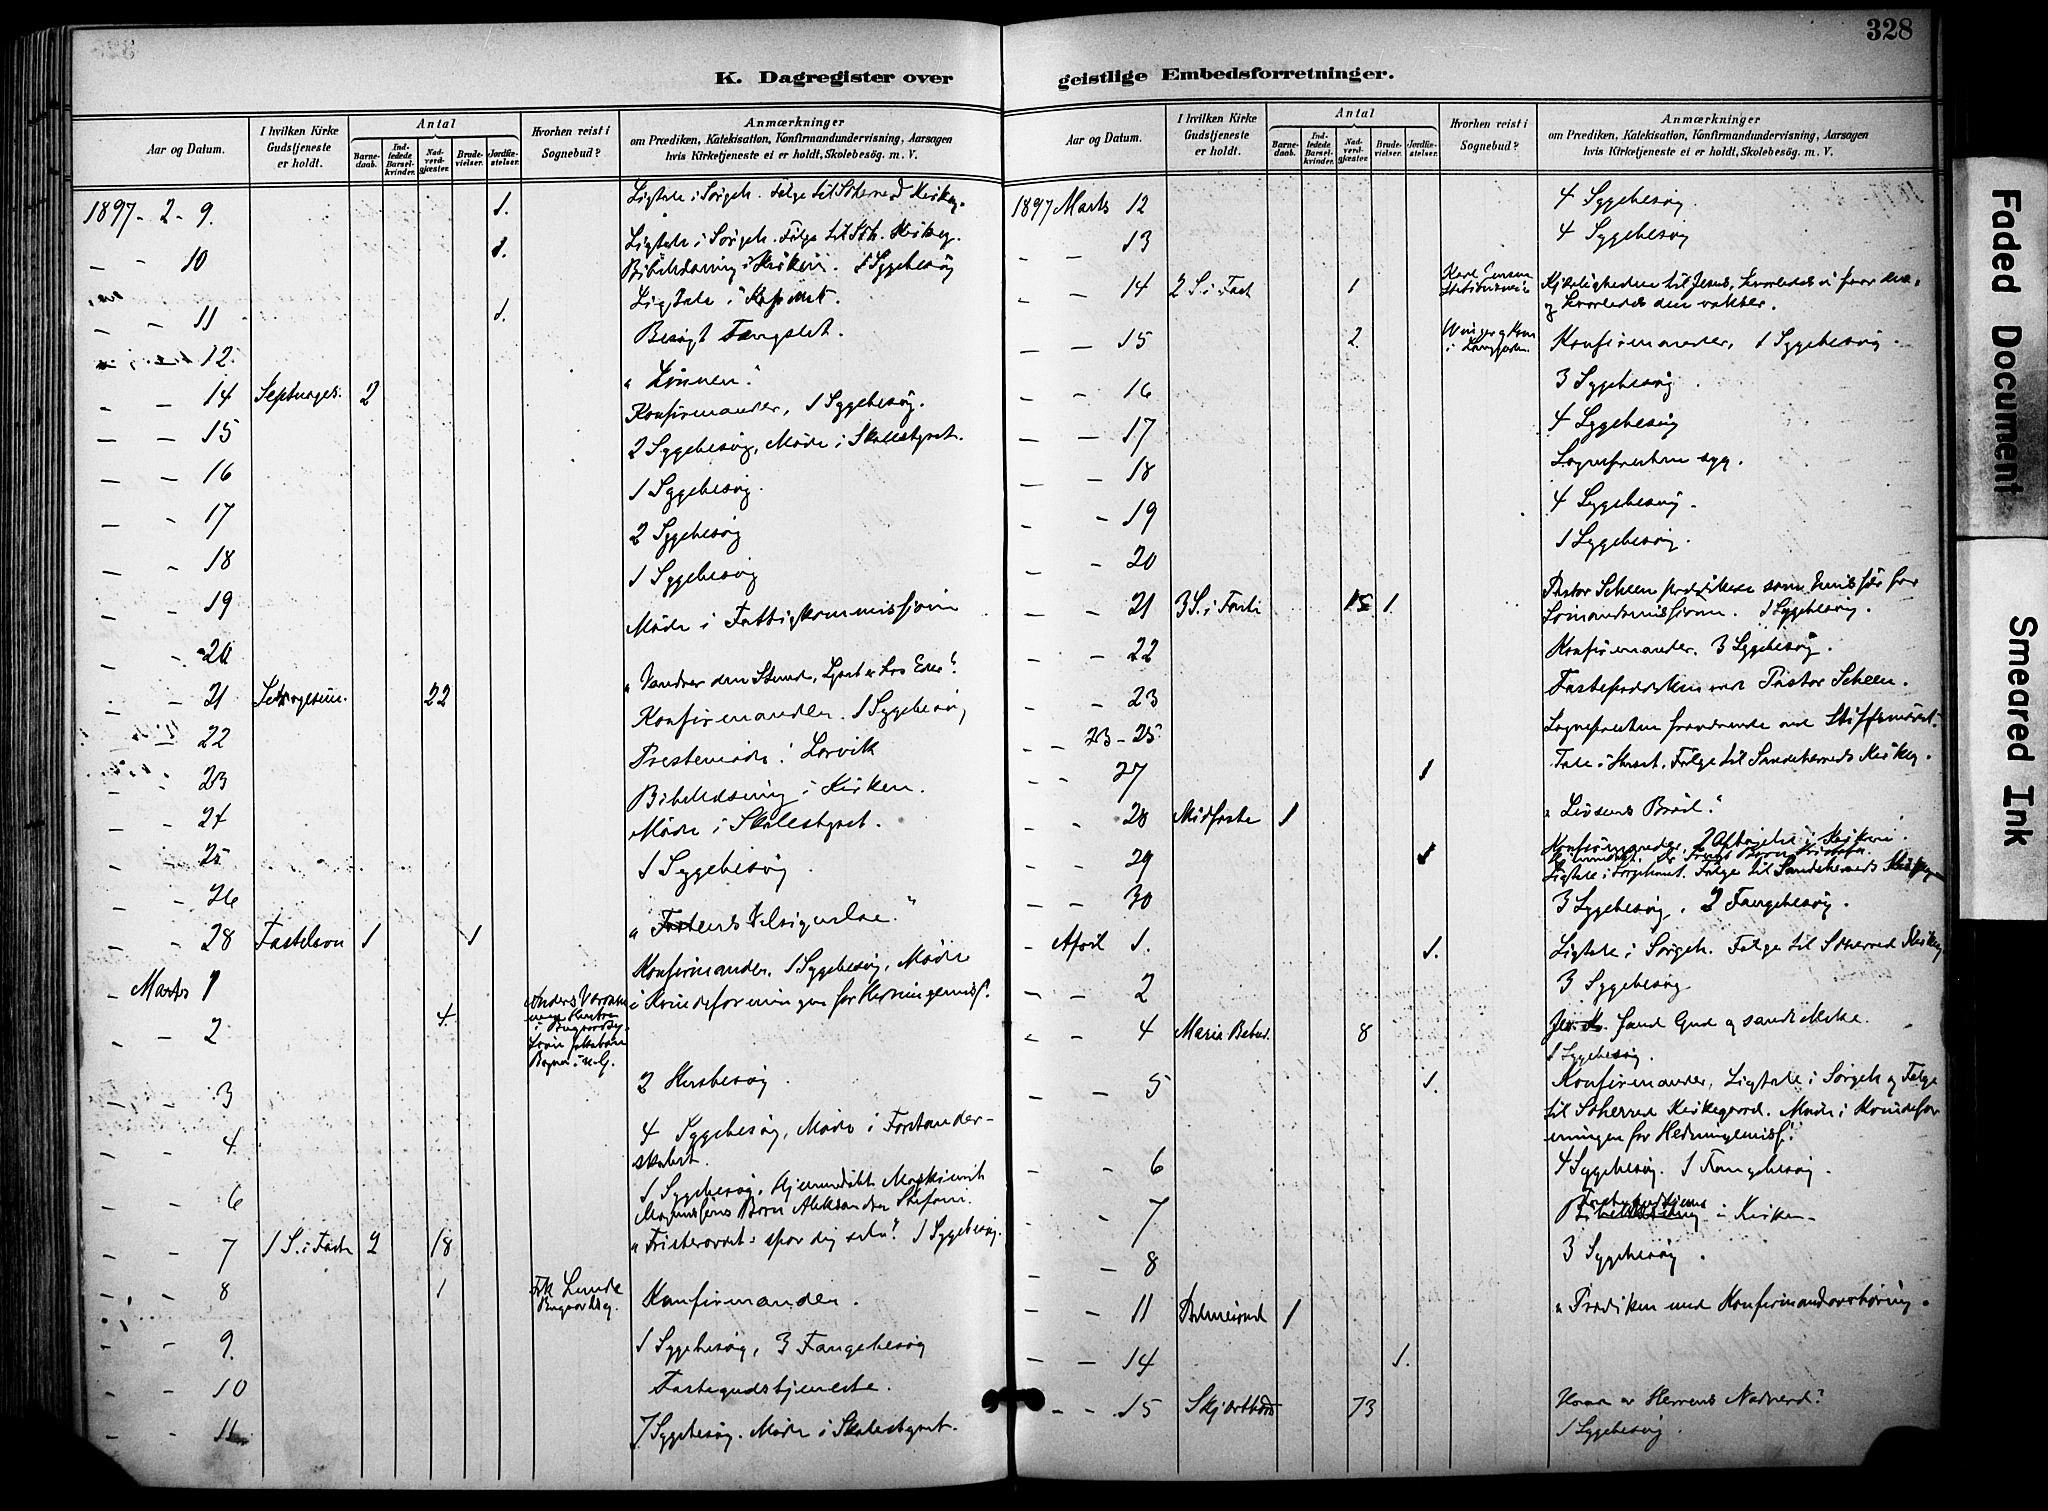 328
K. Dagregister over
geistlige Embedsforretninger.
Aar og Datum.
I hvilken Kirke Gudstjeneste er holdt.
Antal
Barnedaab.
Indledede Barselkvinder.
Nadverdgjæster.
Brudevielser.
Jordfæstelser.
Hvorhen reist i Sognebud?
Anmærkninger
om Prædiken, Katekisation, Konfirmandundervisning, Aarsagen
hvis Kirketjeneste ei er holdt, Skolebesög. m. V.
1897 - 2 - 9. 1. Ligtale i Sørgeh. Følge til Søherred Kirkeg.
- - 10 1. Ligtale i Sørgeh. Følge til Søh. Kirkeg.
Bibellæsning i Kirken. 1 Sygebesøg
- - 11 1. Ligtale i
- - 12. Besøgt Fængslet.
- - 14 Septuages. 2 "Lønnen."
- - 15 Konfirmander, 1 Sygebesøg.
- - 16 2 Sygebesøg, Møde i Skolestyret.
- - 17 1 Sygebesøg.
- - 18 2 Sygebesøg
- - 19 1 Sygebesøg
- - 20 Møde i Fattigkommissionen
- - 21 22 "Vandrer den Stund, Lyset er hos Eder"
- - 22 Konfirmander. 1 Sygebesøg
- - 23 Prestemøde i Larvik
- - 24 Bibellæsning i Kirken.
- - 25 Møde i Skolestyret.
- - 26 1 Sygebesøg
- - 28 Fastelavn 1 1 "Fastens Velsignelse."
- Marts 1 Konfirmander, 1 Sygebesøg, Møde
i Kvindeforeningen for Hedningemiss.
- - 2 4.
- - 3 2 Husbesøg.
- - 4. 4 Sygebesøg, Møde i Forstander-
skabet.
- - 6 1 Sygebesøg. Hjemmedøbt Maskinist
Magnussens Barn Aleksander
- - 7 1 S. i Faste 2 18 "Fristerordet: spar dig selv" 1 Sygebesøg.
- - 8 1 Frk Lunde Konfirmander.
- - 9. 1 Sygebesøg, 3 Fangebesøg
- - 10 Fastegudstjeneste.
- - 11 7 Sygebesøg. Møde i Skolestyret.
Aar og Datum.
I hvilken Kirke Gudstjeneste er holdt.
Antal
Barnedaab.
Indledede Barselkvinder.
Nadverdgjæster.
Brudevielser.
Jordfæstelser.
Hvorhen reist i Sognebud?
Anmærkninger
om Prædiken, Katekisation, Konfirmandundervisning, Aarsagen
hvis Kirketjeneste ei er holdt, Skolebesög. m. V.
1897 Marts 12 4 Sygebesøg.
- - 13 4 Sygebesøg
- - 14 2 S. i Fast 1 Karl Kjærligheden til Jesus, hvorledes vi faar den,
og hvorledes den vokser.
- - 15 2 Konfirmander, 1 Sygebesøg.
- - 16 3 Sygebesøg.
- - 17 4 Sygebesøg
- - 18 Sognepresten syg.
- - 19 4 Sygebesøg.
- - 20 1 Sygebesøg.
- - 21 3 S. i Faste 15 1. Pastor Scheen prædikede som Emissær for
Sømandsmissionen. 1 Sygebesøg.
- - 22 Konfirmander. 3 Sygebesøg.
- - 23 Fasteprædiken ved Pastor Scheen.
- - 23-25 Sognepresten fraværende ved
- - 27 1 Tale i Huset. Følge til Sandeherreds Kirkeg.
- - 28 Midfaste 1 "Livsens Brød."
- - 29 1 Konfirmander,
Ligtale i Sørgehuset. Følge til Sandeherreds
- - 30 3 Sygebesøg. 2 Fangebesøg.
- April 1. 1. Ligtale i Sørgeh. Følge til Søherred Kirkeg
- - 2 3 Sygebesøg
- - 4 Maria Bebud. 8 sand Gud og sandt Mske.
1 Sygebesøg.
- - 5 1. Konfirmander, Ligtale i Sørgeh og Følge
til Søherred Kirkegaard. Møde i Kvindefor
eningen for Hedningemiss.
- - 6 4 Sygebesøg. 1 Fangebesøg.
- - 7 i Kirken
- - 8 3 Sygebesøg.
- - 11 Palmesønd 1 "Prædiken med Konfirmandoverhøring.
- - 14 1.
- - 15 Skjærtorsd 73 Hvad er Herrens Nadverd?
1 Sygebesøg.
Faded Document
Smeared Ink